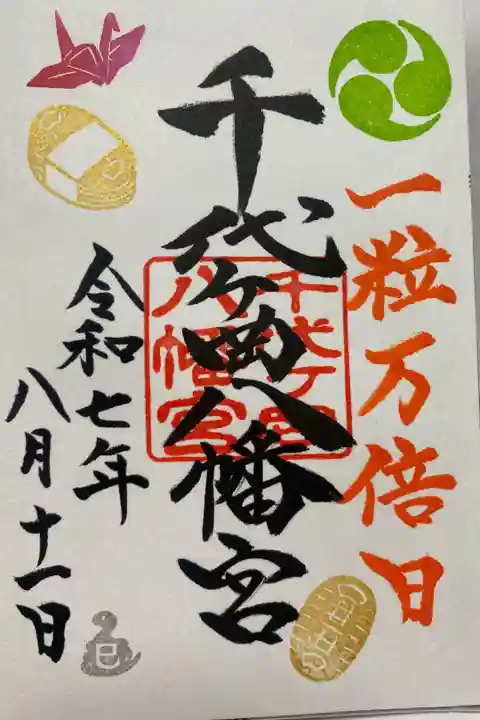 一粒万倍日
千代ヶ岡八幡宮
千代ヶ岡
八幡宮
令和七年
八月十一日
巳